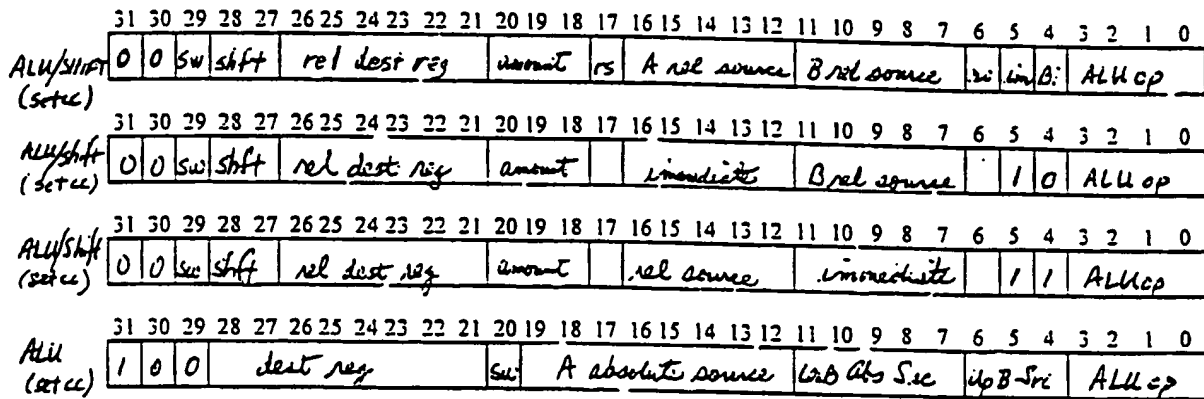 31 30 29 28 27 26 25 24 23 22 21 20 19 18 17 16 15 14 13 12 11 10 9 8 7 6 5 4 3 2 1 0
ALU/SHIFT 0 0 Sw shft rel dest reg amount rs A rel source B rel source im Bi ALU op
(setcc)
31 30 29 28 27 26 25 24 23 22 21 20 19 18 17 16 15 14 13 12 11 10 9 8 7 6 5 4 3 2 1 0
ALU/shft 0 0 Sw shft rel dest reg amount immediate B rel source 1 0 ALU op
(setcc)
31 30 29 28 27 26 25 24 23 22 21 20 19 18 17 16 15 14 13 12 11 10 9 8 7 6 5 4 3 2 1 0
ALU/Shift 0 0 Sw shft rel dest reg amount rel source immediate 1 1 ALU op
(setcc)
31 30 29 28 27 26 25 24 23 22 21 20 19 18 17 16 15 14 13 12 11 10 9 8 7 6 5 4 3 2 1 0
ALU 1 0 0 dest reg Sw A absolute source B Abs Src ALU op
(setcc)